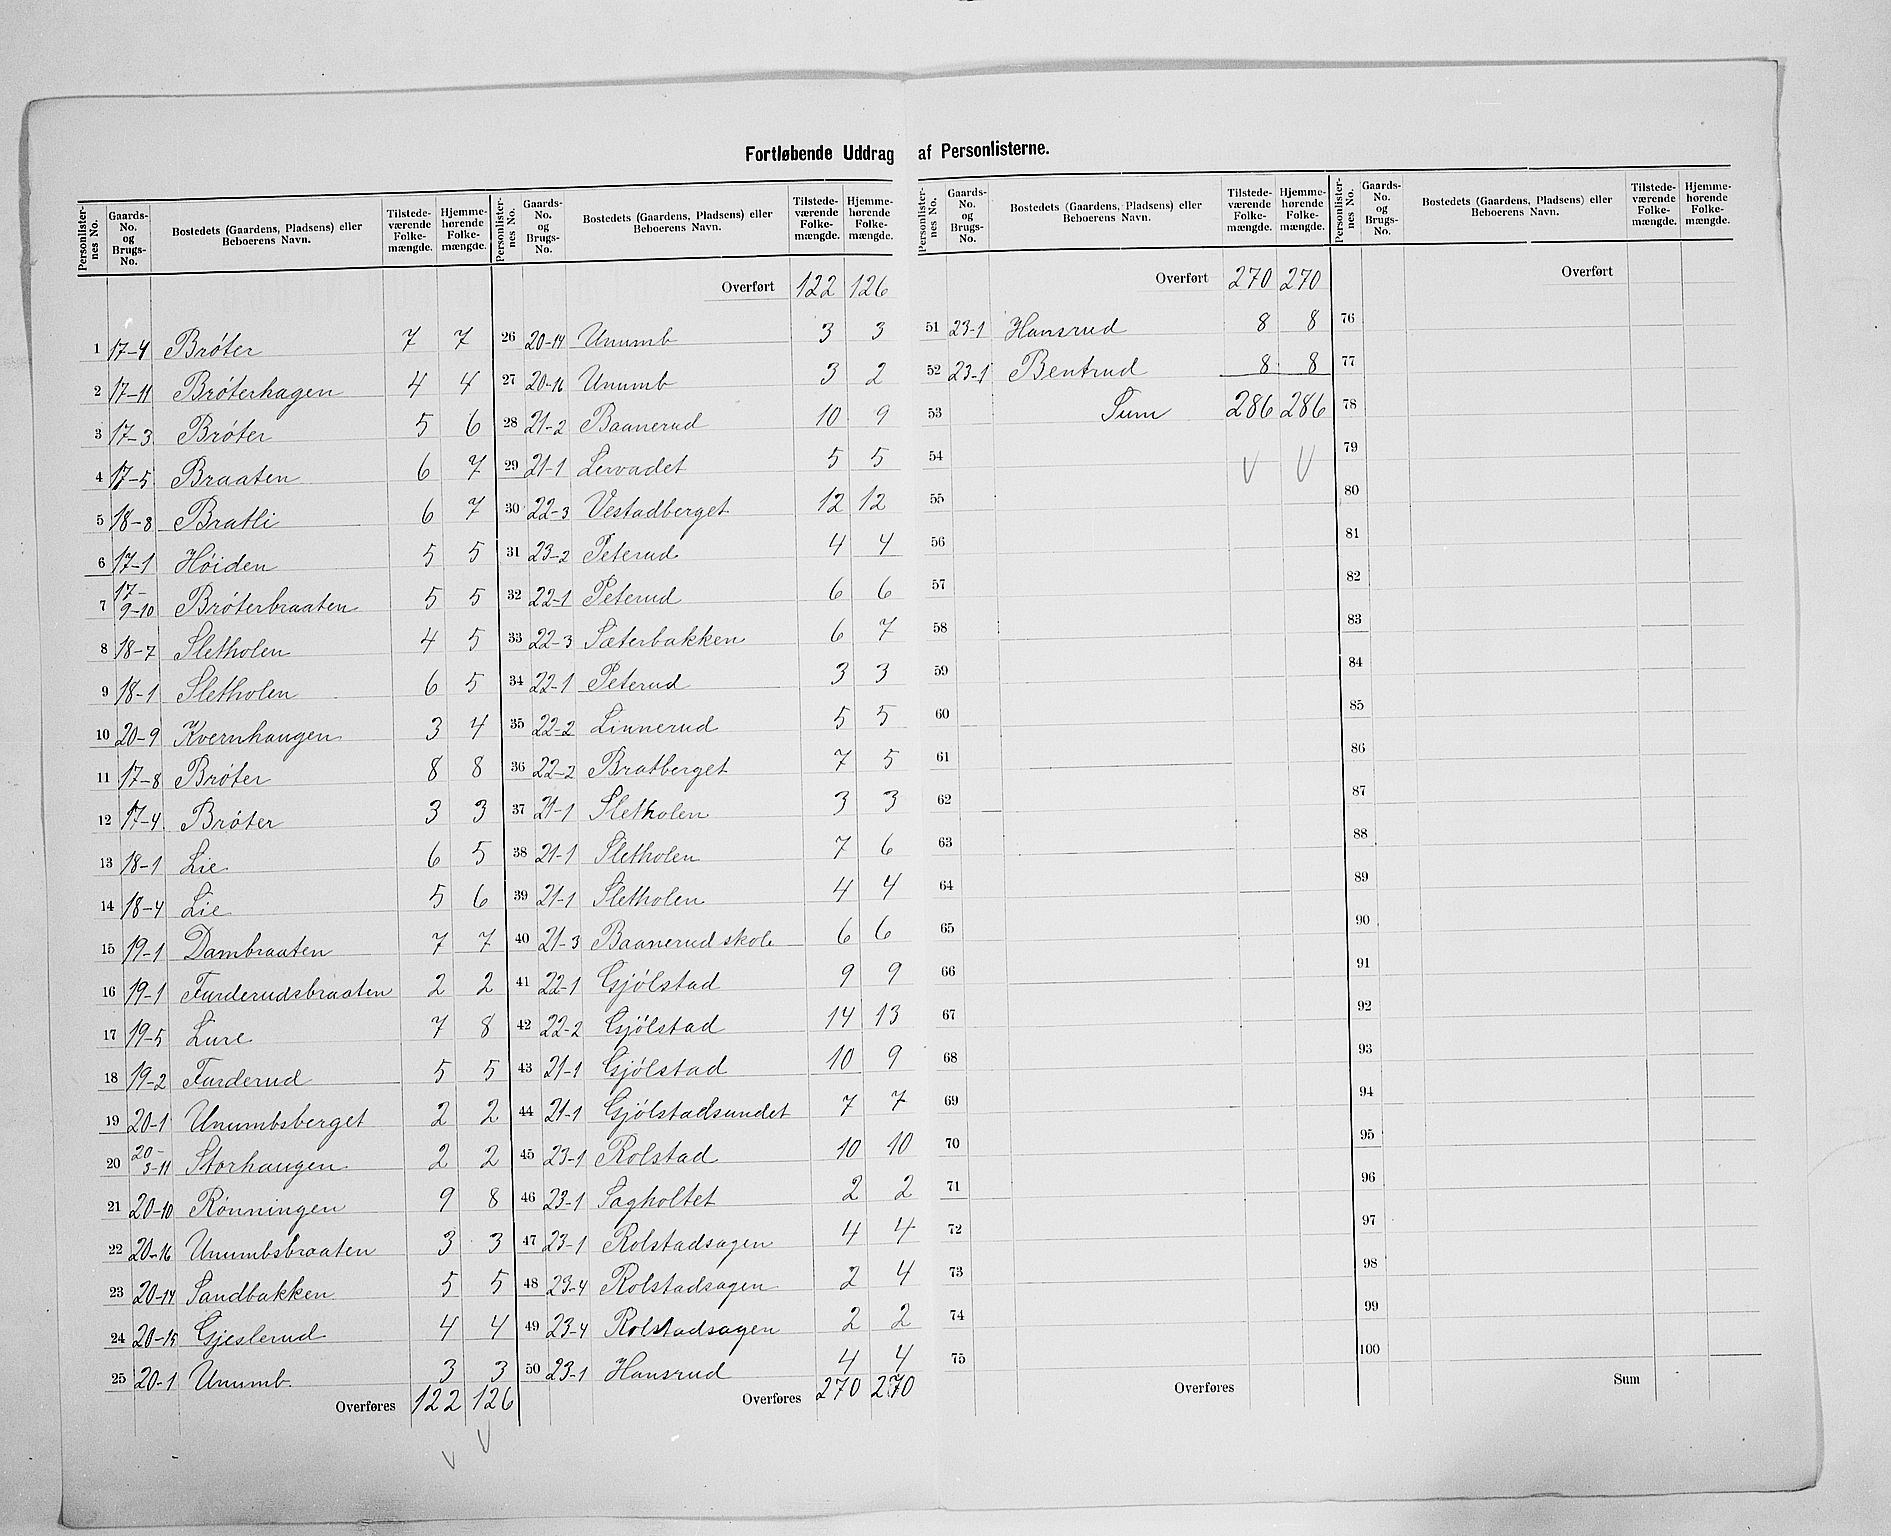 Fortløbende Uddrag af Personlisterne.
Personlisternes No. | Gaards-No. og Brugs-No. | Bostedets (Gaardens, Pladsens) eller Beboerens Navn. | Tilstedeværende Folkemængde. | Hjemmehørende Folkemængde.
1 17-4 Brøter 7 7
2 17-11 Brøterhagen 4 4
3 17-3 Brøter 5 6
4 17-5 Braaten 6 7
5 18-8 Bratli 6 7
6 17-1 Høiden 5 5
7 17-9-10 Brøterbraaten 5 5
8 18-7 Sletholen 4 5
9 18-1 Sletholen 6 5
10 20-9 Kvernhaugen 3 4
11 17-8 Brøter 8 8
12 17-4 Brøter 3 3
13 18-1 Lie 6 5
14 18-4 Lie 5 6
15 19-1 Dambraaten 7 7
16 19-1 Furderudsbraaten 2 2
17 19-5 Lure 7 8
18 19-2 Furderud 5 5
19 20-1 Unumbsberget 2 2
20 20-3-11 Storhaugen 2 2
21 20-10 Rønningen 9 8
22 20-16 Unumbsbraaten 3 3
23 20-14 Sandbakken 5 5
24 20-15 Gjeslerud 4 4
25 20-1 Unumb. 3 3
Overføres 122 126
Personlisternes No. | Gaards-No. og Brugs-No. | Bostedets (Gaardens, Pladsens) eller Beboerens Navn. | Tilstedeværende Folkemængde. | Hjemmehørende Folkemængde.
Overført 122 126
26 20-14 Unumb 3 3
27 20-16 Unumb 3 2
28 21-2 Baanerud 10 9
29 21-1 Levadet 5 5
30 22-3 Vestadberget 12 12
31 23-2 Peterud 4 4
32 22-1 Peterud 6 6
33 22-3 Sæterbakken 6 7
34 22-1 Peterud 3 3
35 22-2 Linnerud 5 5
36 22-2 Bratberget 7 5
37 21-1 Sletholen 3 3
38 21-1 Sletholen 7 6
39 21-1 Sletholen 4 4
40 21-3 Baanerud skole 6 6
41 22-1 Gjølstad 9 9
42 22-2 Gjølstad 14 13
43 21-1 Gjølstad 10 9
44 21-1 Gjølstadsundet 7 7
45 23-1 Rolstad 10 10
46 23-1 Sagholtet 2 2
47 23-1 Rolstadsagen 4 4
48 23-4 Rolstadsagen 2 4
49 23-4 Rolstadsagen 2 2
50 23-1 Hansrud 4 4
Overføres 270 270
Personlisternes No. | Gaards-No. og Brugs-No. | Bostedets (Gaardens, Pladsens) eller Beboerens Navn. | Tilstedeværende Folkemængde. | Hjemmehørende Folkemængde.
Overført 270 270
51 23-1 Hansrud 8 8
52 23-1 Bentrud 8 8
53 Sum 286 286
54
55
56
57
58
59
60
61
62
63
64
65
66
67
68
69
70
71
72
73
74
75
Overføres
Personlisternes No. | Gaards-No. og Brugs-No. | Bostedets (Gaardens, Pladsens) eller Beboerens Navn. | Tilstedeværende Folkemængde. | Hjemmehørende Folkemængde.
Overført
76
77
78
79
80
81
82
83
84
85
86
87
88
89
90
91
92
93
94
95
96
97
98
99
100
Sum